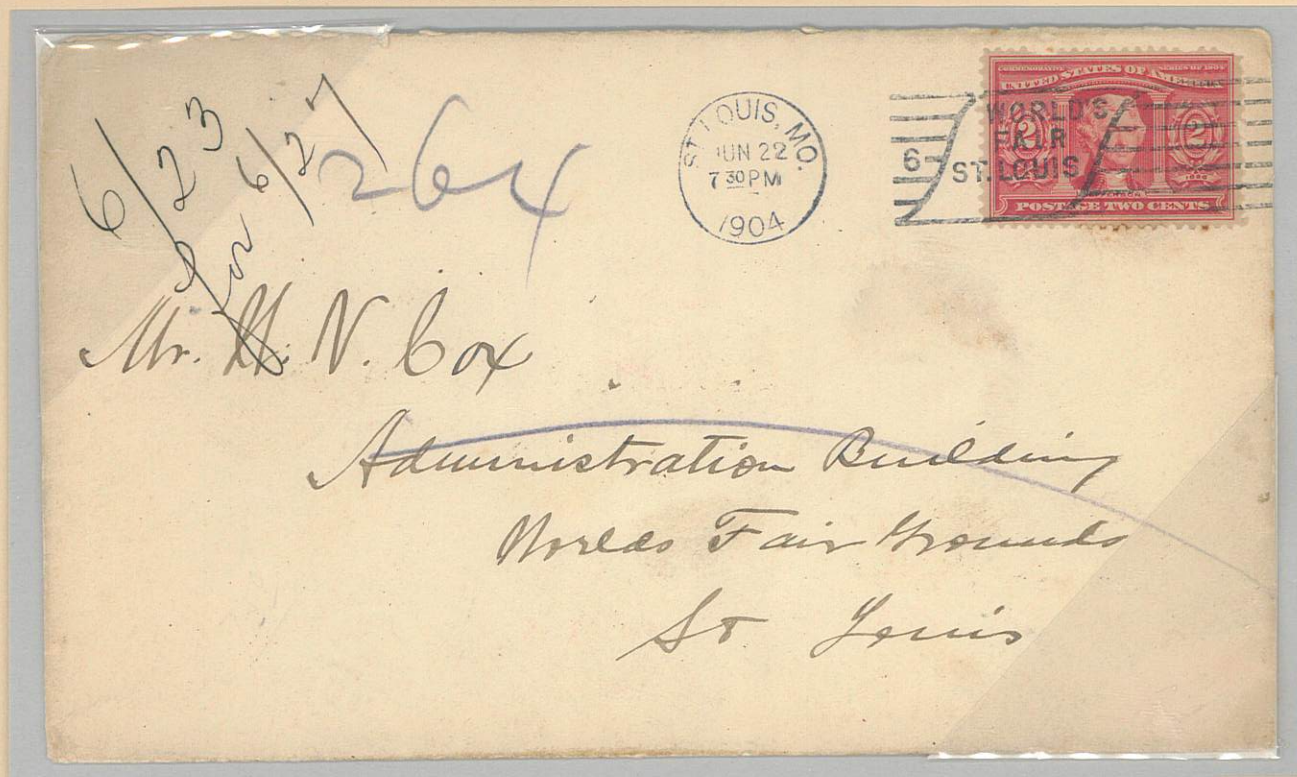 6/23
for 6/27
264
ST. LOUIS, MO.
JUN 22
7 30 PM
1904
6
WORLD'S
FAIR
ST. LOUIS
COMMEMORATIVE SERIES OF 1904
UNITED STATES OF AMERICA
2 2
POSTAGE TWO CENTS
Mr. H. N. Cox
Administration Building
Worlds Fair Grounds
St Louis